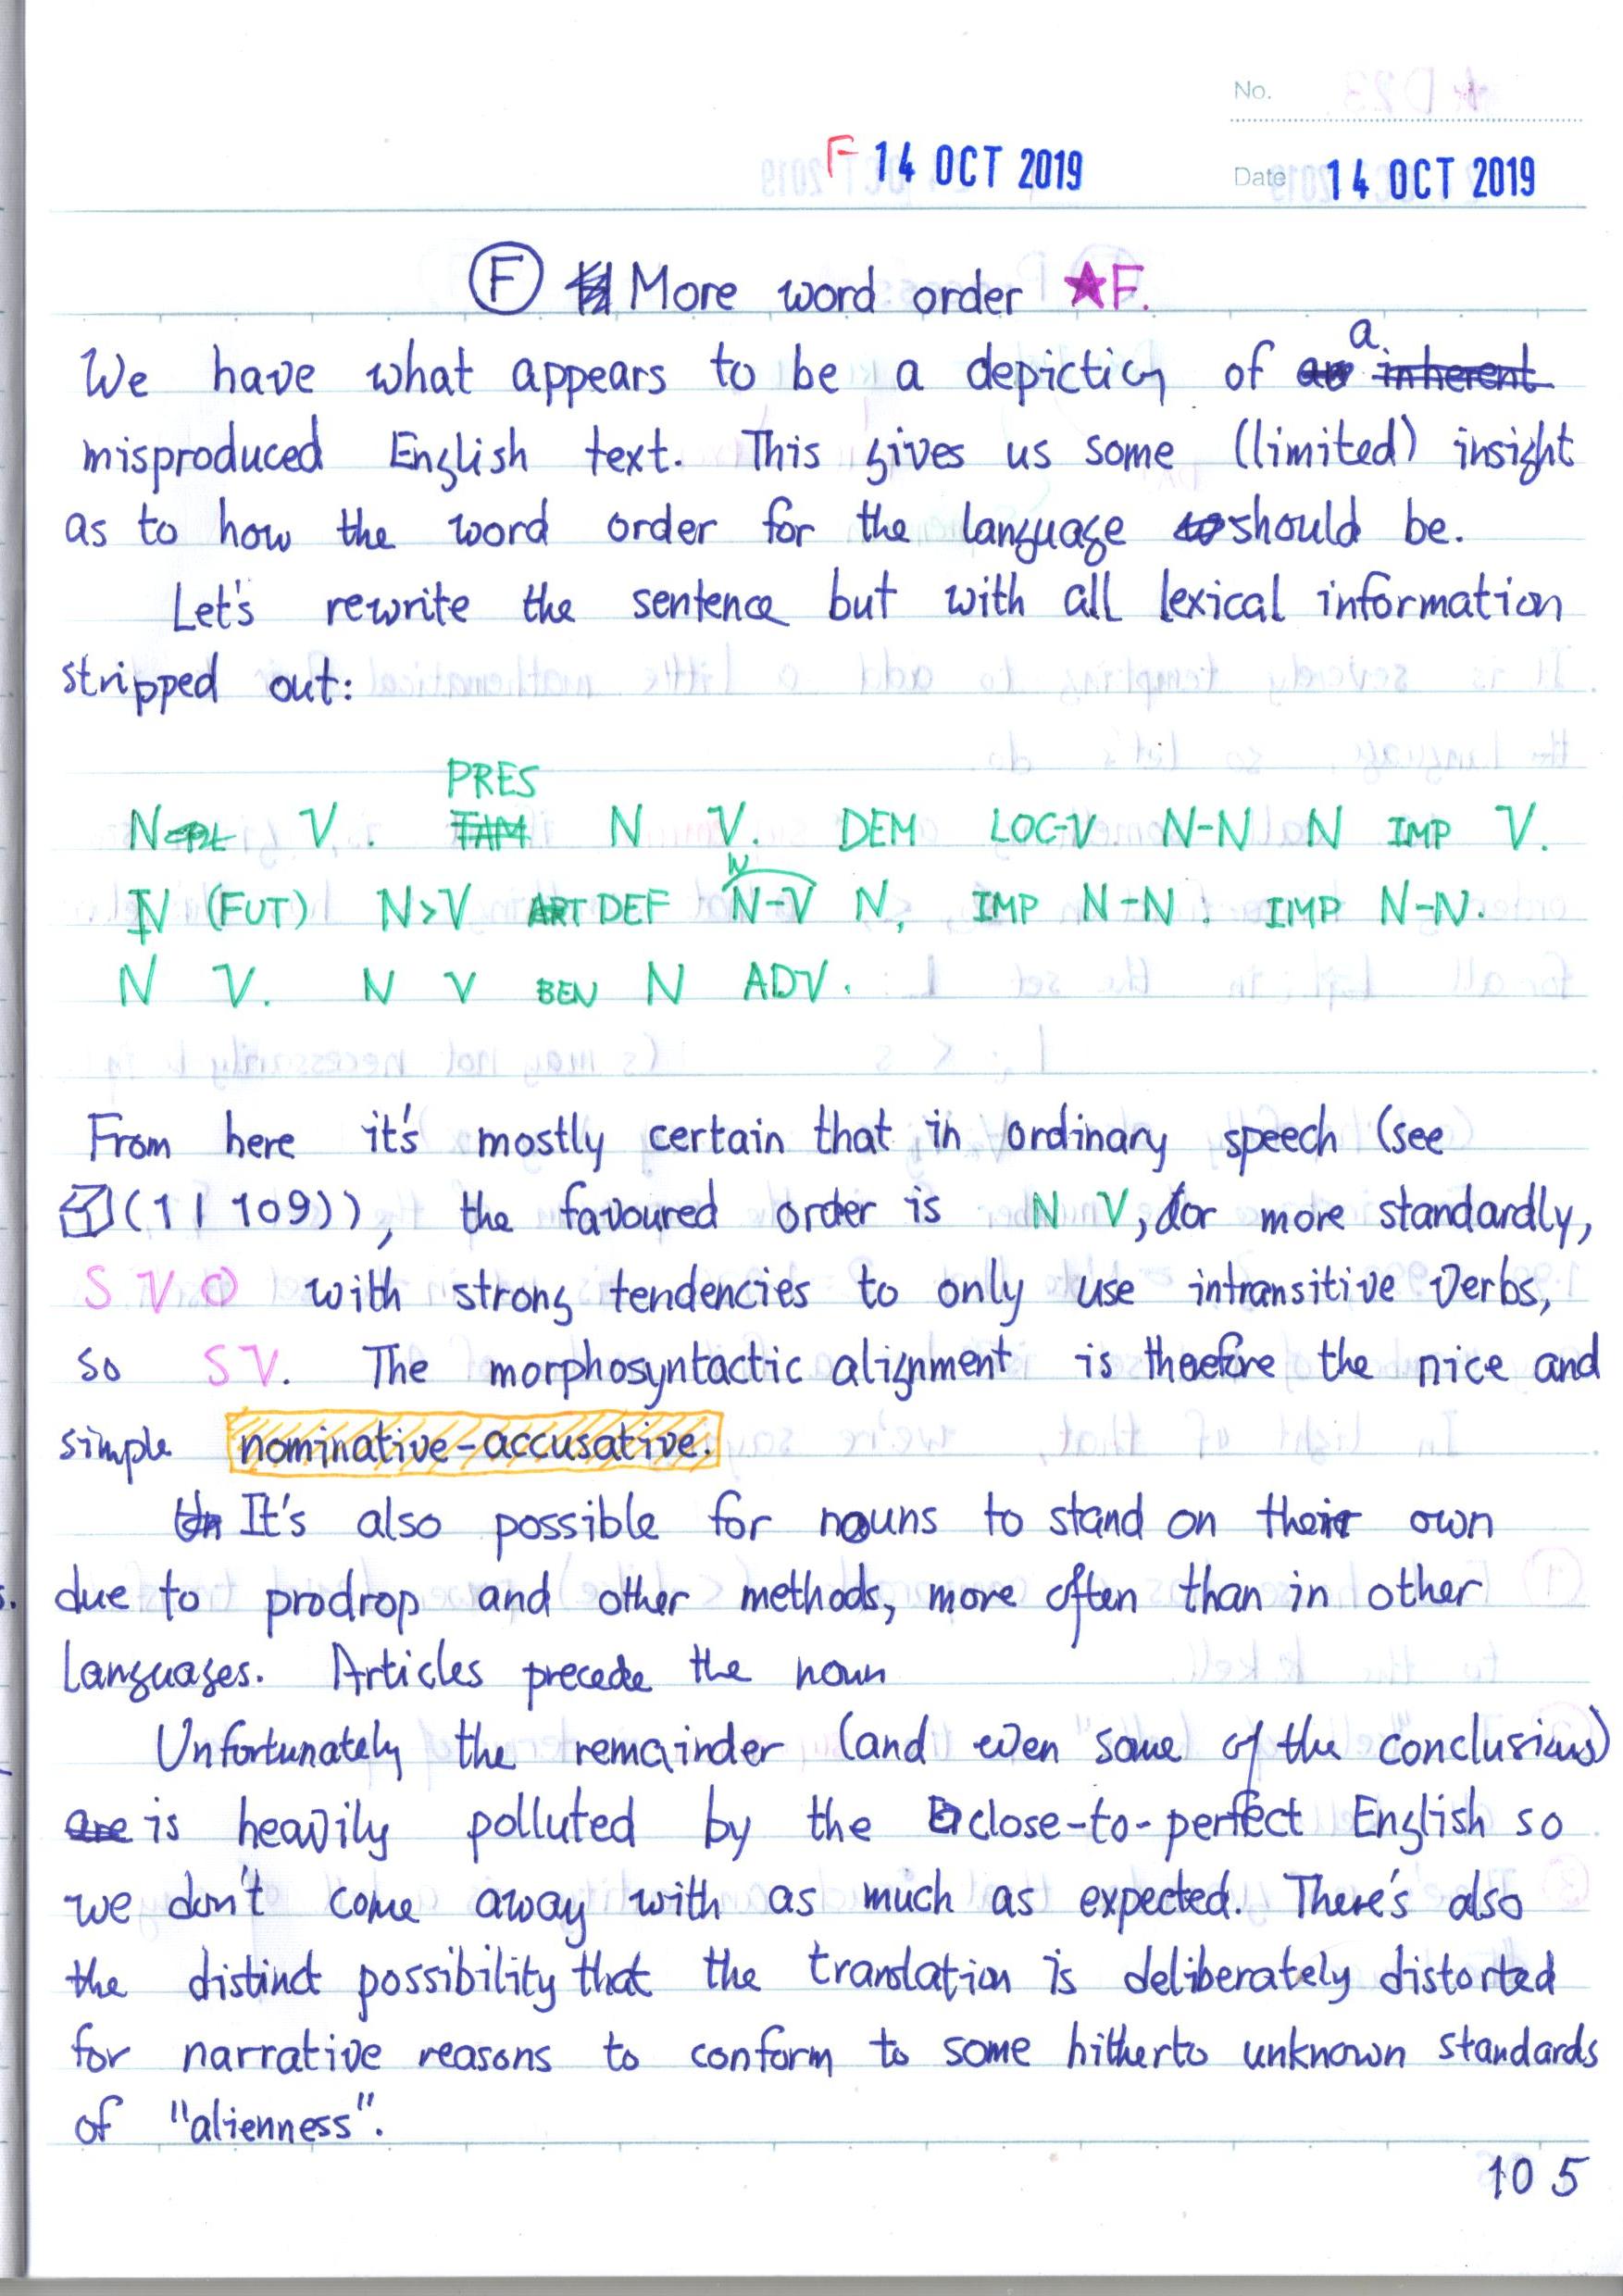 No.
F 14 OCT 2019 Date 14 OCT 2019
F More word order ★F.
We have what appears to be a depiction of a inherent
misproduced English text. This gives us some (limited) insight
as to how the word order for the language should be.
Let's rewrite the sentence but with all lexical information
stripped out:
PRES
N-PL V. TAM N V. DEM LOC-V N-N N IMP V.
N
N (FUT) N>V ART DEF N-V N, IMP N-N. IMP N-N.
N V. N V BEN N ADV.
From here it's mostly certain that in ordinary speech (see
(1 | 109)), the favoured order is N V, or more standardly,
S V O with strong tendencies to only use intransitive verbs,
so SV. The morphosyntactic alignment is therefore the nice and
simple nominative-accusative.
It's also possible for nouns to stand on their own
due to prodrop and other methods, more often than in other
languages. Articles precede the noun
Unfortunately the remainder (and even some of the conclusions)
are is heavily polluted by the close-to-perfect English so
we don't come away with as much as expected. There's also
the distinct possibility that the translation is deliberately distorted
for narrative reasons to conform to some hitherto unknown standards
of "alienness".
105